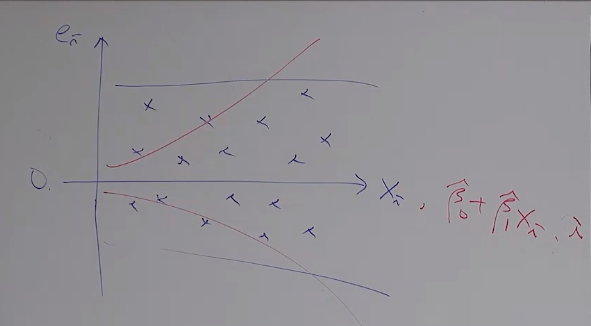 eᵢ
0.
Xᵢ, β̂₀ + β̂₁Xᵢ, i